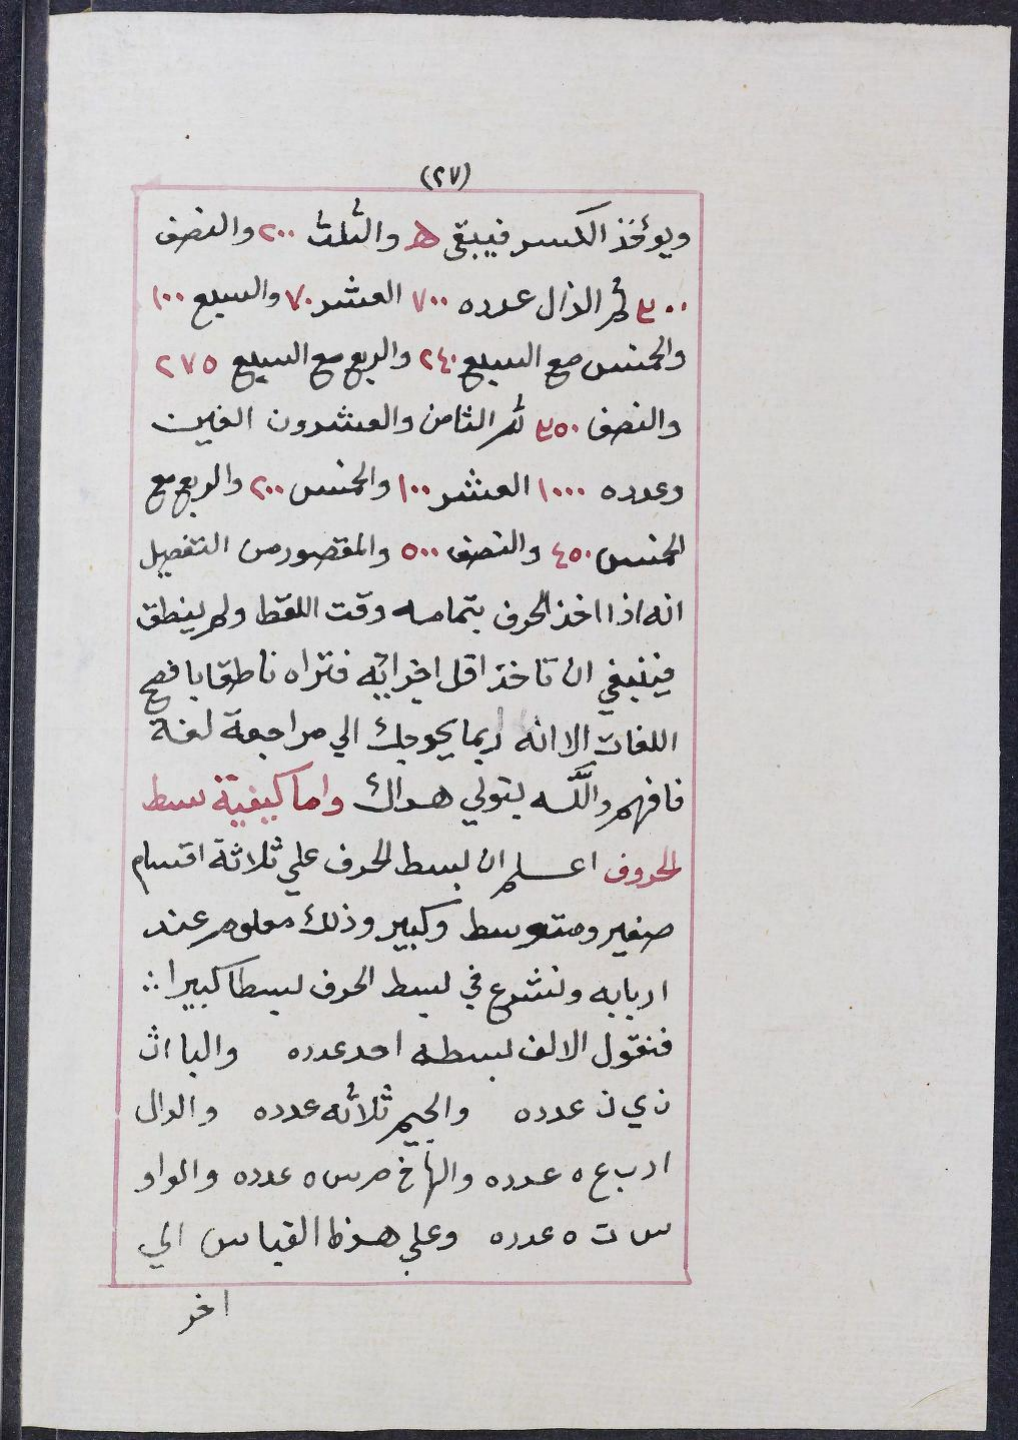 (٢٧)
ويوءخذ الكسر فيبقى ه والثلث ٢٠٠ والنصف
٣٠٠ ثم الذال عدده ٧٠٠ العشر ٧٠ والسبع ١٠٠
والخمس مع السبع ٢٤٠ والربع مع السبع ٢٧٥
والنصف ٣٥٠ ثم الثامن والعشرون الغين
وعدده ١٠٠٠ العشر ١٠٠ والخمس ٢٠٠ والربع مع
الخمس ٤٥٠ والنصف ٥٠٠ والمقصود من التفصيل
انه اذا اخذ الحرف بتمامه وقت اللقط ولم ينطق
فينبغي ان تاخذ اقل اجزائه فتراه ناطقا بافصح
اللغات الا انه ربما يحوجك الي مراجعة لغة
فافهم والله يتولي هداك واما كيفية بسط
الحروف اعلم ان بسط الحرف علي ثلاثة اقسام
صغير ومتوسط وكبير وذلك معلوم عند
اربابه ولنشرع في بسط الحرف بسطا كبيرا
فنقول الالف بسطه احد عدده والبا اث
ن ي ن عدده والجيم ثلاثه عدده والدال
ا ر ب ع ه عدده والها خ م س ه عدده والواو
س ت ه عدده وعلي هذا القياس الي
اخر